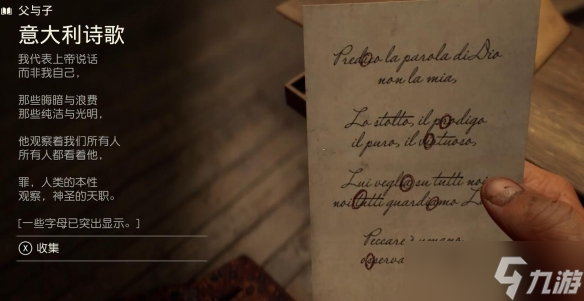 父与子
意大利诗歌
我代表上帝说话
而非我自己，
那些晦暗与浪费
那些纯洁与光明，
他观察着我们所有人
所有人都看着他，
罪，人类的本性
观察，神圣的天职。
[一些字母已突出显示。]
X 收集
Predico la parola di Dio
non la mia,
Lo stolto, il prodigo
il puro, il virtuoso,
Lui veglia su tutti noi
noi tutti guardiamo
Peccare
osserva
九游